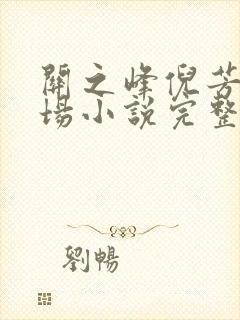 關之峰倪芳
場小說完整
劉暢